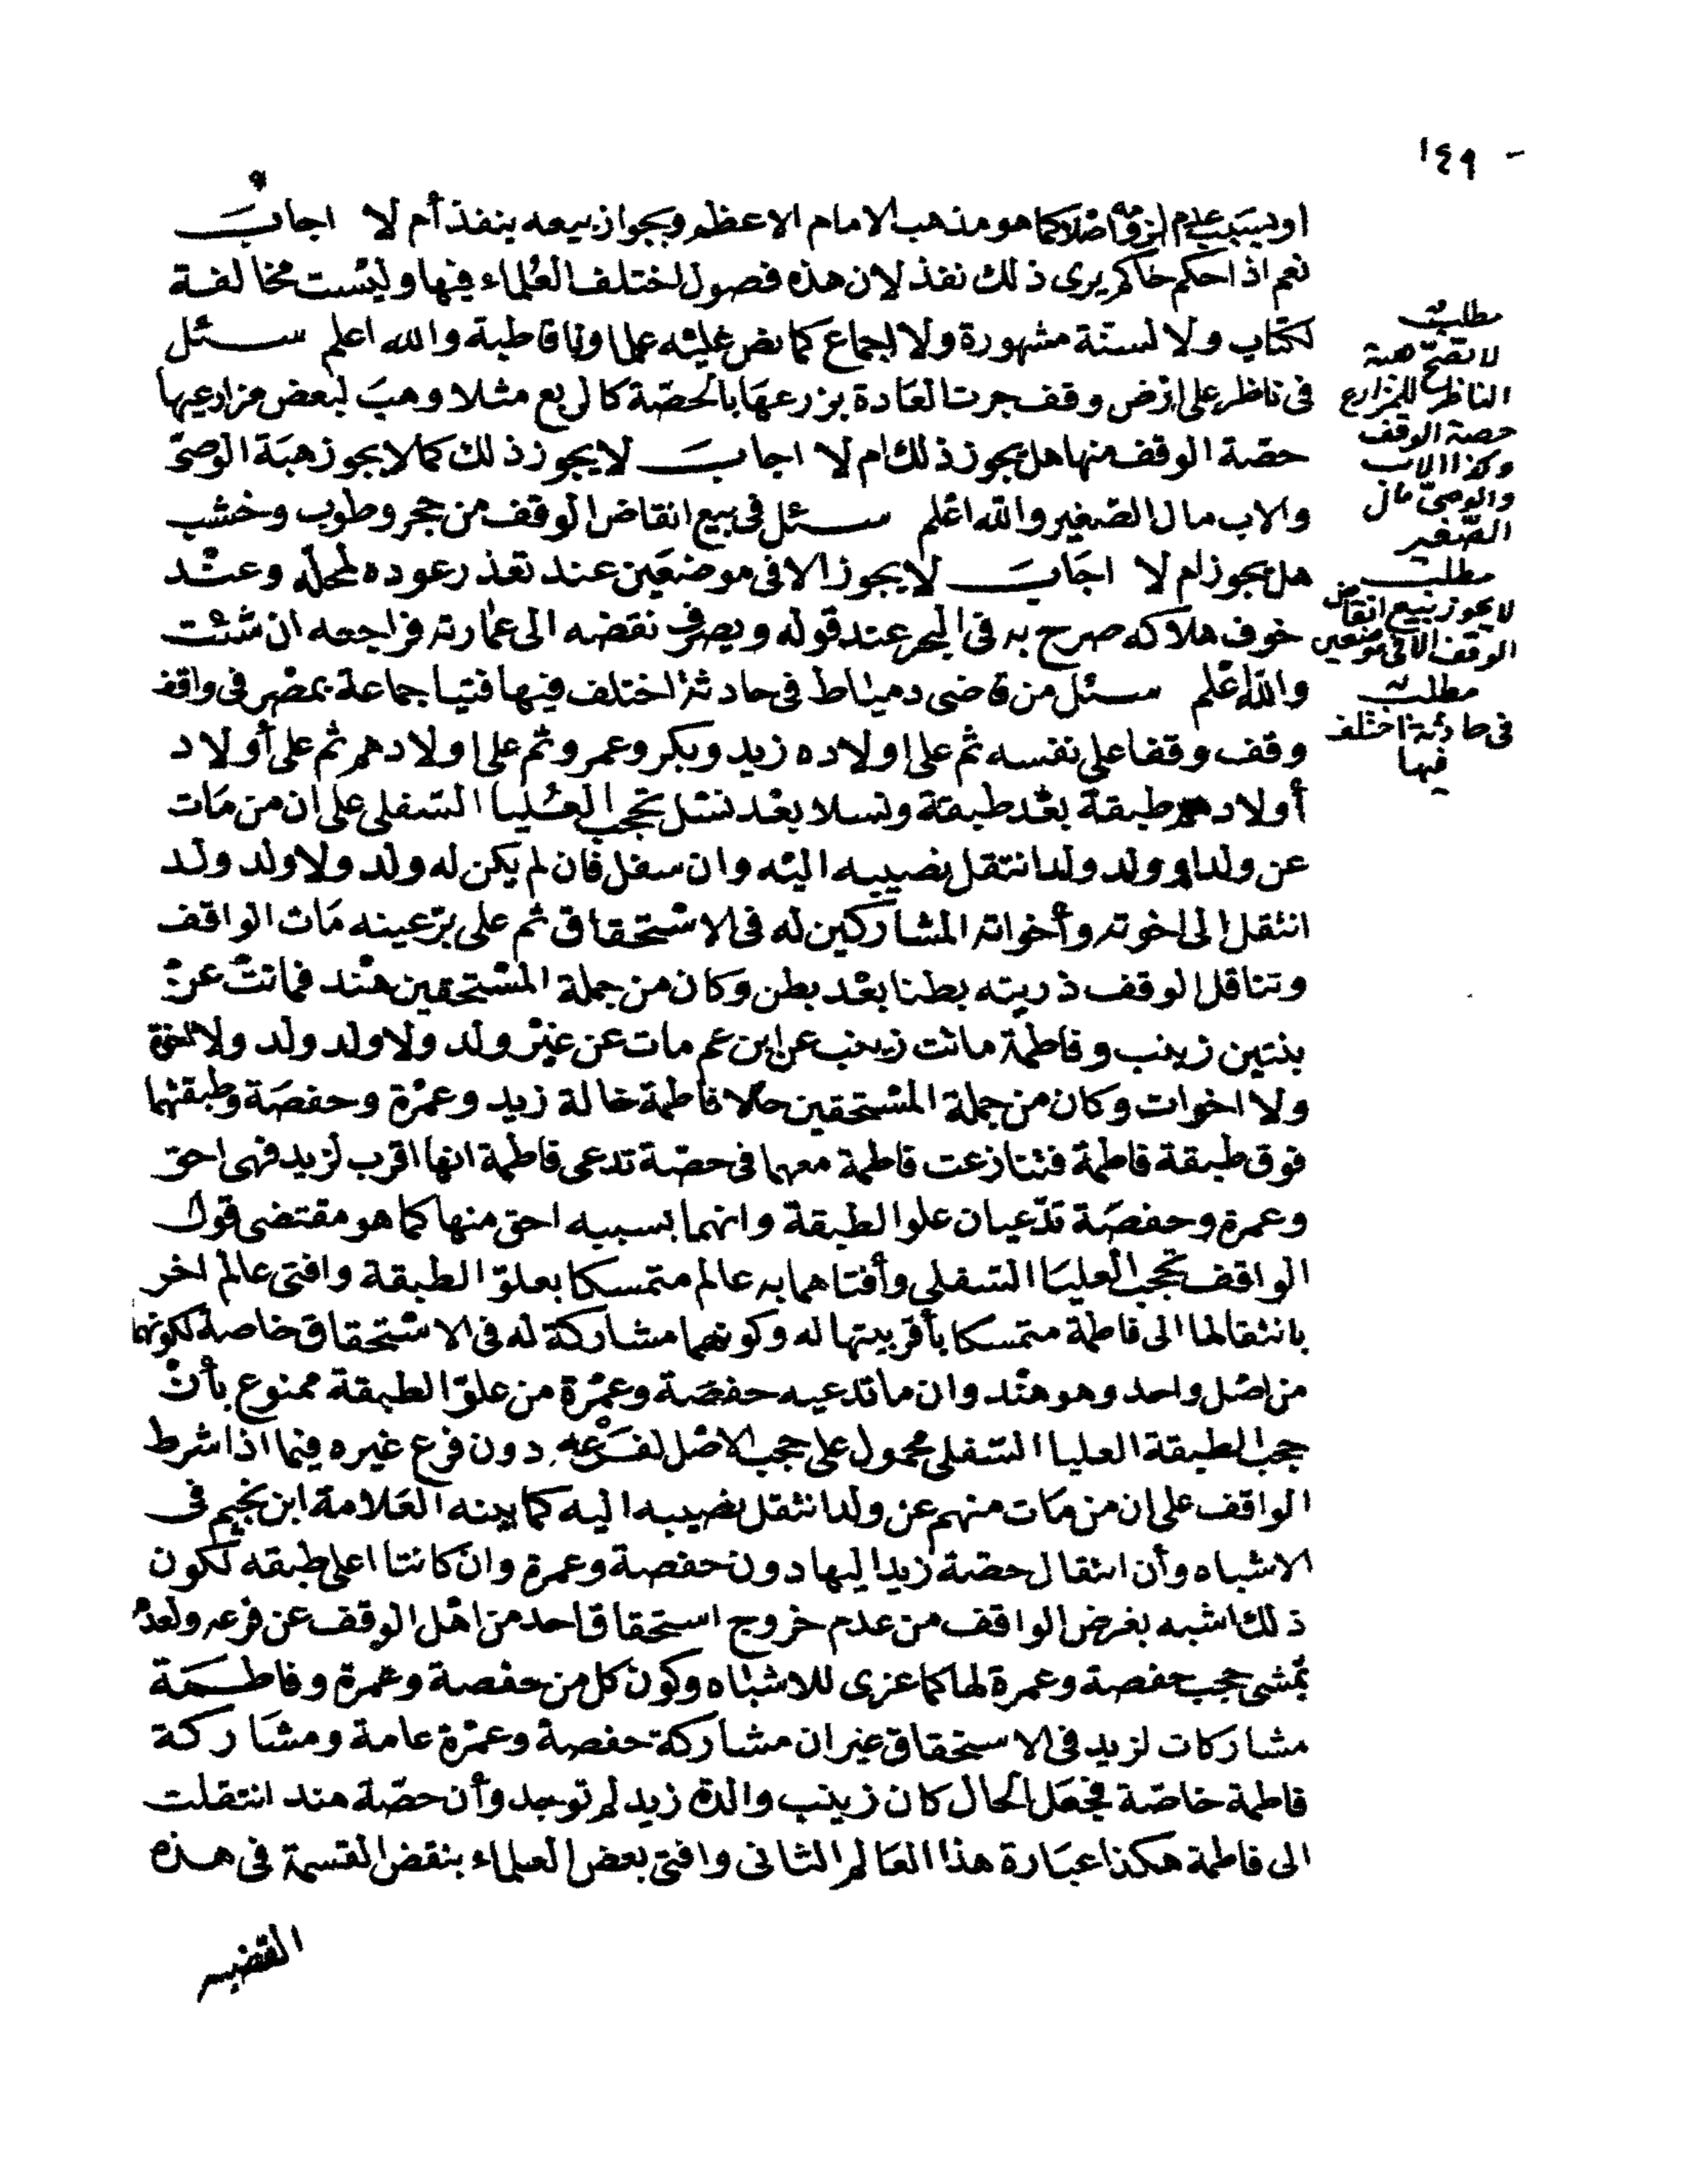 ١٤٩
او بسبب عدم لزومه اصلا كما هو مذهب الامام الاعظم وبجواز بيعه ينفذ أم لا اجاب
نعم اذا حكم حاكم يرى ذلك نفذ لان هذه فصول اختلف العلماء فيها وليست مخالفة
لكتاب ولا لسنة مشهورة ولا اجماع كما نص عليه علماونا قاطبة والله اعلم سئل
فى ناظر على ارض وقف جرت العادة بزرعها بالحصة كالربع مثلا وهب لبعض مزارعيها
حصة الوقف منها هل يجوز ذلك ام لا اجاب لا يجوز ذلك كما لا يجوز هبة الوصى
والاب مال الصغير والله اعلم سئل فى بيع انقاض الوقف من حجر وطوب وخشب
هل يجوز ام لا اجاب لا يجوز الا فى موضعين عند تعذر عوده لمحله وعند
خوف هلاكه صرح به فى البحر عند قوله ويصرف نقضه الى عمارته فراجعه ان شئت
والله اعلم سئل من قاضى دمياط فى حادثة اختلف فيها فتيا جماعة بمصر فى واقف
وقف وقفا على نفسه ثم على اولاده زيد وبكر وعمر وثم على اولادهم ثم على أولاد
أولادهم طبقة بعد طبقة ونسلا بعد نسل تحجب العليا السفلى على ان من مات
عن ولد او ولد ولد انتقل نصيبه اليه وان سفل فان لم يكن له ولد ولا ولد ولد
انتقل الى اخوته وأخواته المشاركين له فى الاستحقاق ثم على بر عينه مات الواقف
وتناقل الوقف ذريته بطنا بعد بطن وكان من جملة المستحقين هند فماتت عن
بنتين زينب وفاطمة ماتت زينب عن ابن عم مات عن غير ولد ولا ولد ولد ولا اخوة
ولا اخوات وكان من جملة المستحقين حالا فاطمة خالة زيد وعمرة وحفصة وطبقتهما
فوق طبقة فاطمة فتنازعت فاطمة معهما فى حصة تدعى فاطمة انها اقرب لزيد فهى احق
وعمرة وحفصة تدعيان علو الطبقة وانهما بسببه احق منها كما هو مقتضى قول
الواقف تحجب العليا السفلى وأفتاهما به عالم متمسكا بعلو الطبقة وافتى عالم اخر
بانتقالها الى فاطمة متمسكا بأقربيتها له وكونهما مشاركة له فى الاستحقاق خاصة لكونهما
من اصل واحد وهو هند وان ما تدعيه حفصة وعمرة من علو الطبقة ممنوع بأن
حجب الطبقة العليا السفلى محمول على حجب الاصل لفرعه دون فرع غيره فيما اذا شرط
الواقف على ان من مات منهم عن ولد انتقل نصيبه اليه كما بينه العلامة ابن نجيم فى
الاشباه وأن انتقال حصة زيد اليها دون حفصة وعمرة وان كانتا اعلى طبقه لكون
ذلك اشبه بغرض الواقف من عدم خروج استحقاق احد من اهل الوقف عن فرعه ولعدم
تمشى حجب حفصة وعمرة لها كما عزى للاشباه وكون كل من حفصة وعمرة وفاطمة
مشاركات لزيد فى الاستحقاق غير ان مشاركة حفصة وعمرة عامة ومشاركة
فاطمة خاصة فجعل الحال كان زينب والدة زيد لم توجد وأن حصة هند انتقلت
الى فاطمة هكذا عبارة هذا العالم الثانى وافتى بعض العلماء بنقض القسمة فى هذه
القضيه
مطلب
لا تصح هبة
الناظر للمزارع
حصة الوقف
وكذا الاب
والوصى مال
الصغير
مطلب
لا يجوز بيع انقاض
الوقف الا فى موضعين
مطلب
فى حادثة اختلف
فيها